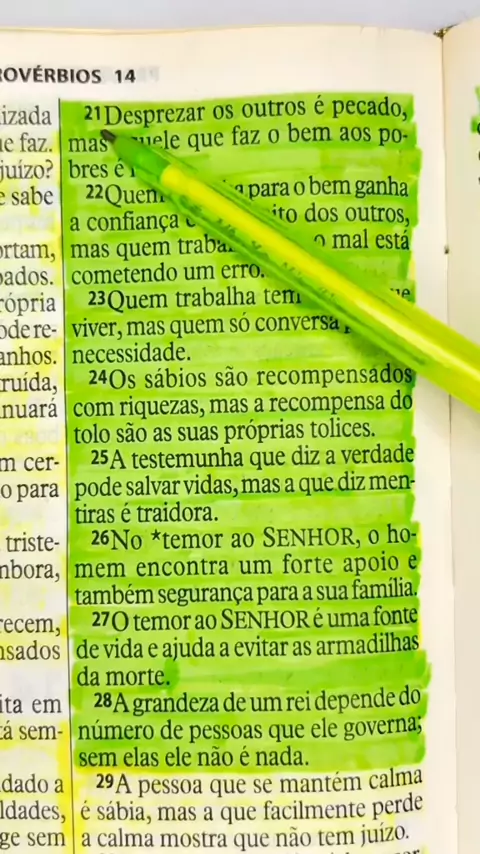 PROVÉRBIOS 14
izada
ue faz.
juízo?
e sabe
ortam,
ados.
rópria
ode re-
anhos.
ruída,
nuará
m cer-
o para
triste-
mbora,
recem,
nsados
ita em
tá sem-
dado a
ldades,
ge sem
21Desprezar os outros é pecado,
mas que faz o bem aos po-
bres é
22Quem para o bem ganha
a confiança dos outros,
mas quem o mal está
cometendo um erro.
23Quem trabalha tem
viver, mas quem só conversa
necessidade.
24Os sábios são recompensados
com riquezas, mas a recompensa do
tolo são as suas próprias tolices.
25A testemunha que diz a verdade
pode salvar vidas, mas a que diz men-
tiras é traidora.
26No *temor ao SENHOR, o ho-
mem encontra um forte apoio e
também segurança para a sua família.
27O temor ao SENHOR é uma fonte
de vida e ajuda a evitar as armadilhas
da morte.
28A grandeza de um rei depende do
número de pessoas que ele governa;
sem elas ele não é nada.
29A pessoa que se mantém calma
é sábia, mas a que facilmente perde
a calma mostra que não tem juízo.